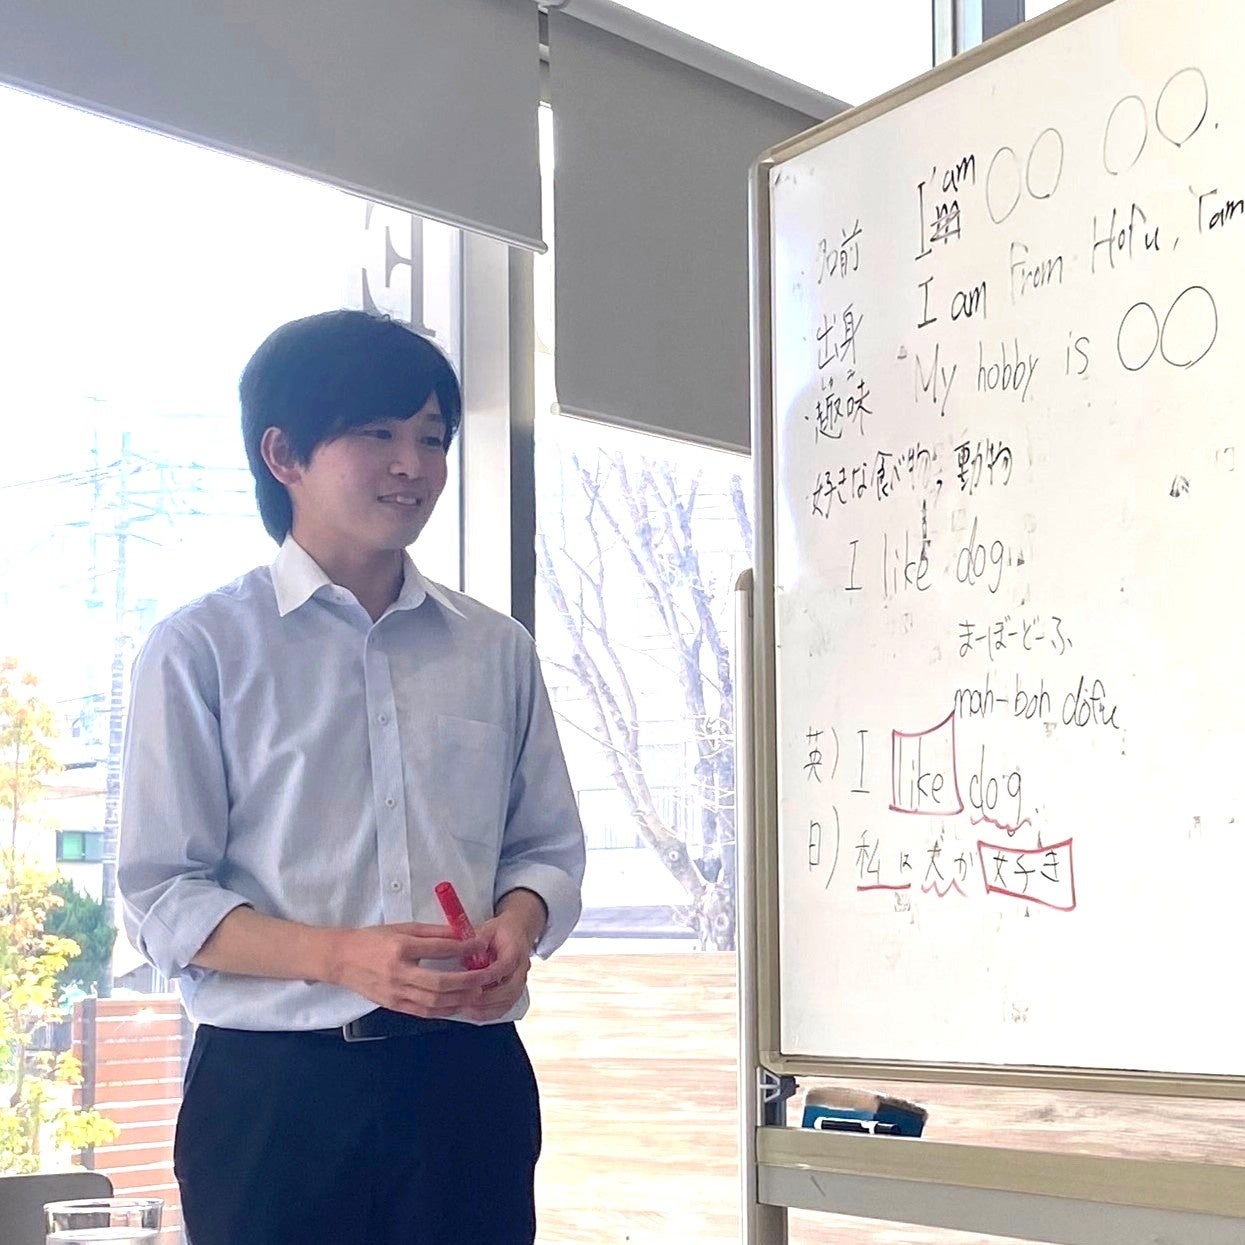 ・名前 I'am ○○ ○○.
・出身 I am from Hofu, Yam
・趣味 My hobby is ○○
好きな食べ物、動物
I like dog.
まーぼーどーふ
mah-boh dofu
英) I like dog.
日) 私は犬が好き
E